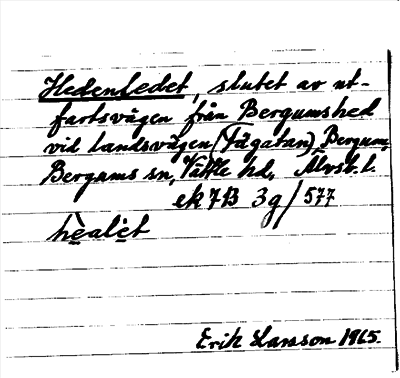 Hedenledet, slutet av ut-
fartsvägen från Bergumshed
vid landsvägen (Fägatan), Bergum,
Bergums sn, Vättle hd, Älvsb. l.
ek 713 3g/577
healet
Erik Larsson 1965.